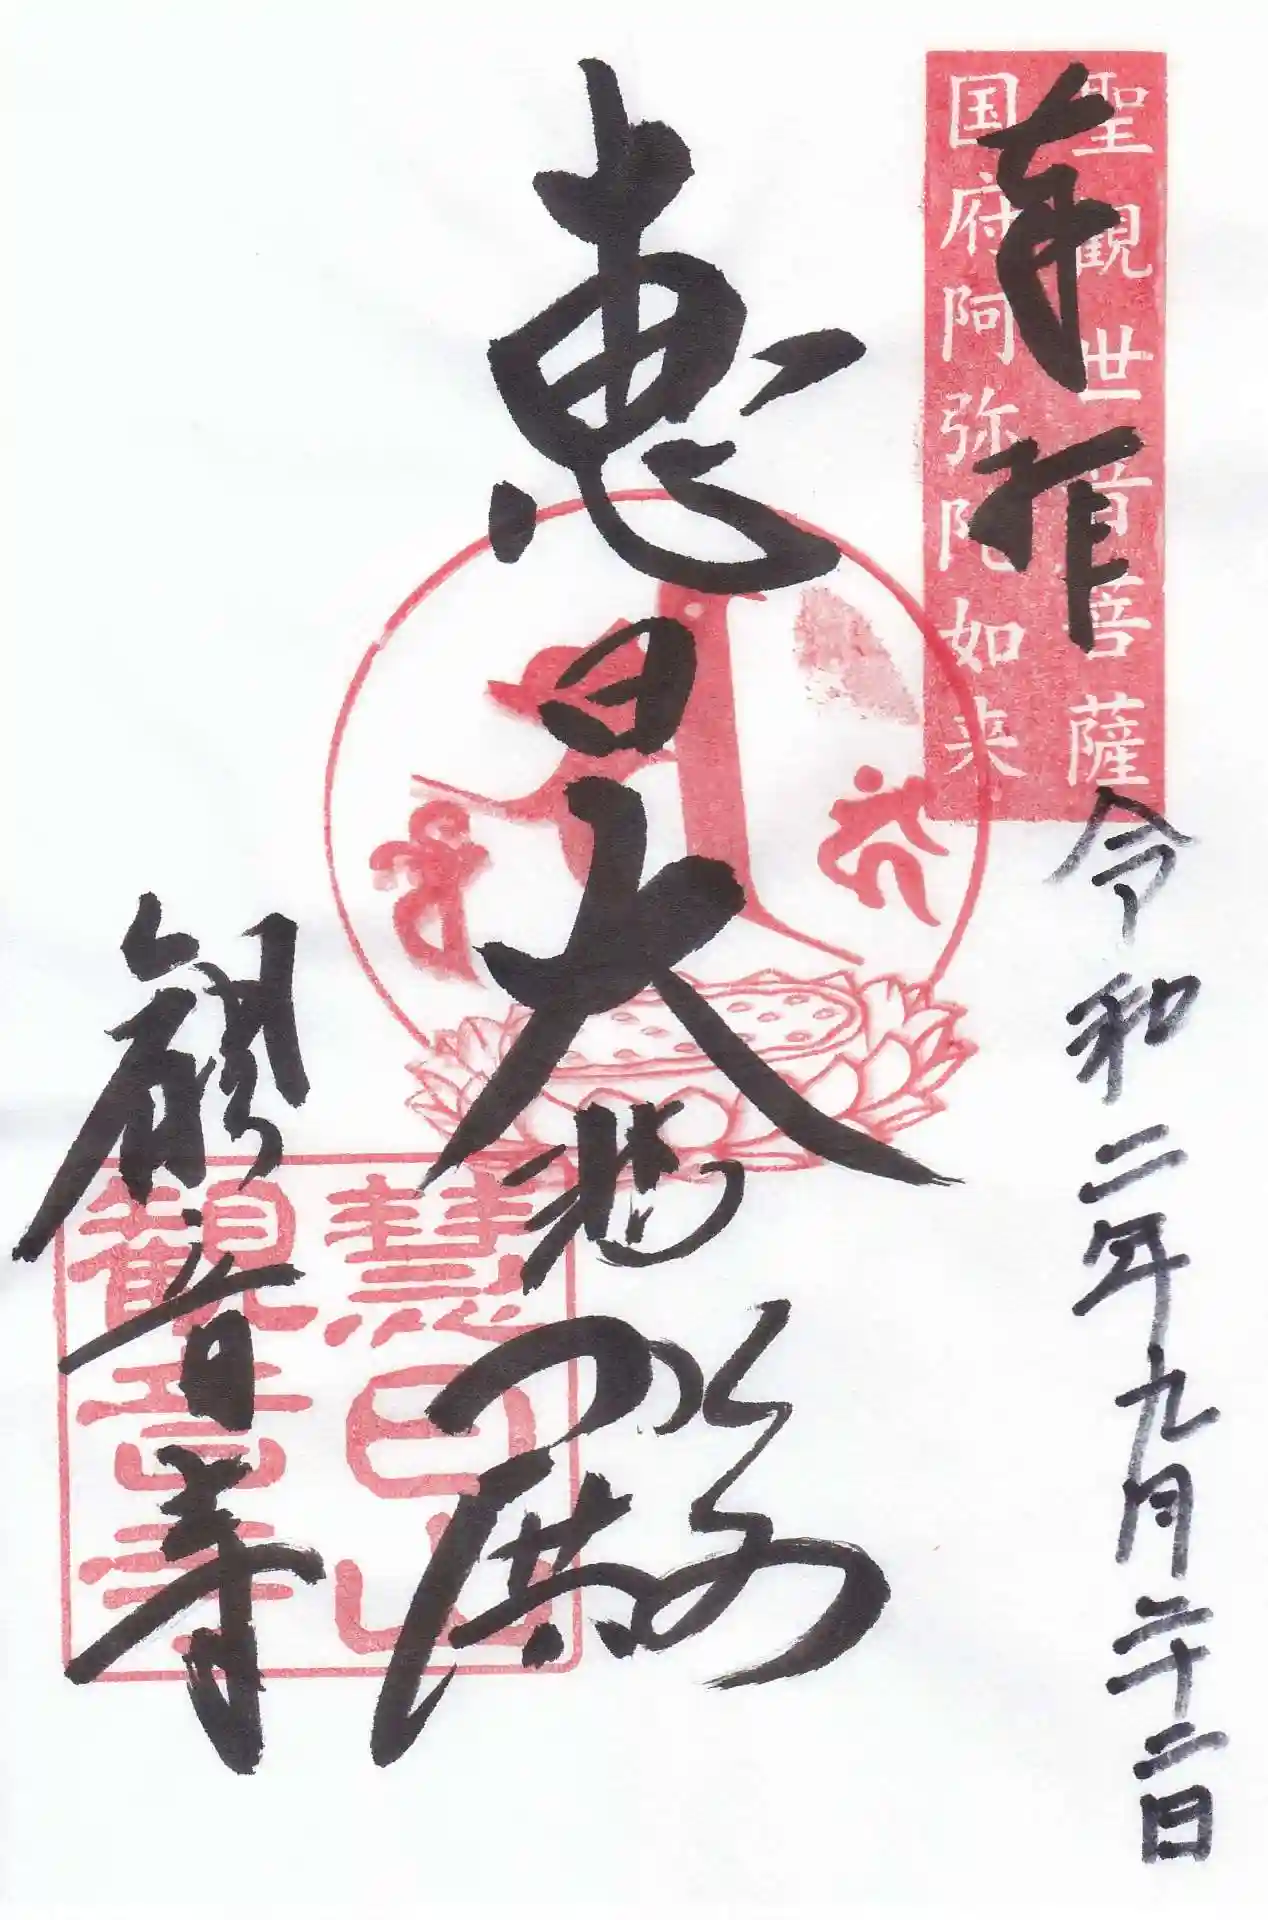 奉拝
聖観世音菩薩
国府阿弥陀如来
令和二年九月二十二日
恵日大悲殿
観音寺
慧日山
観音寺